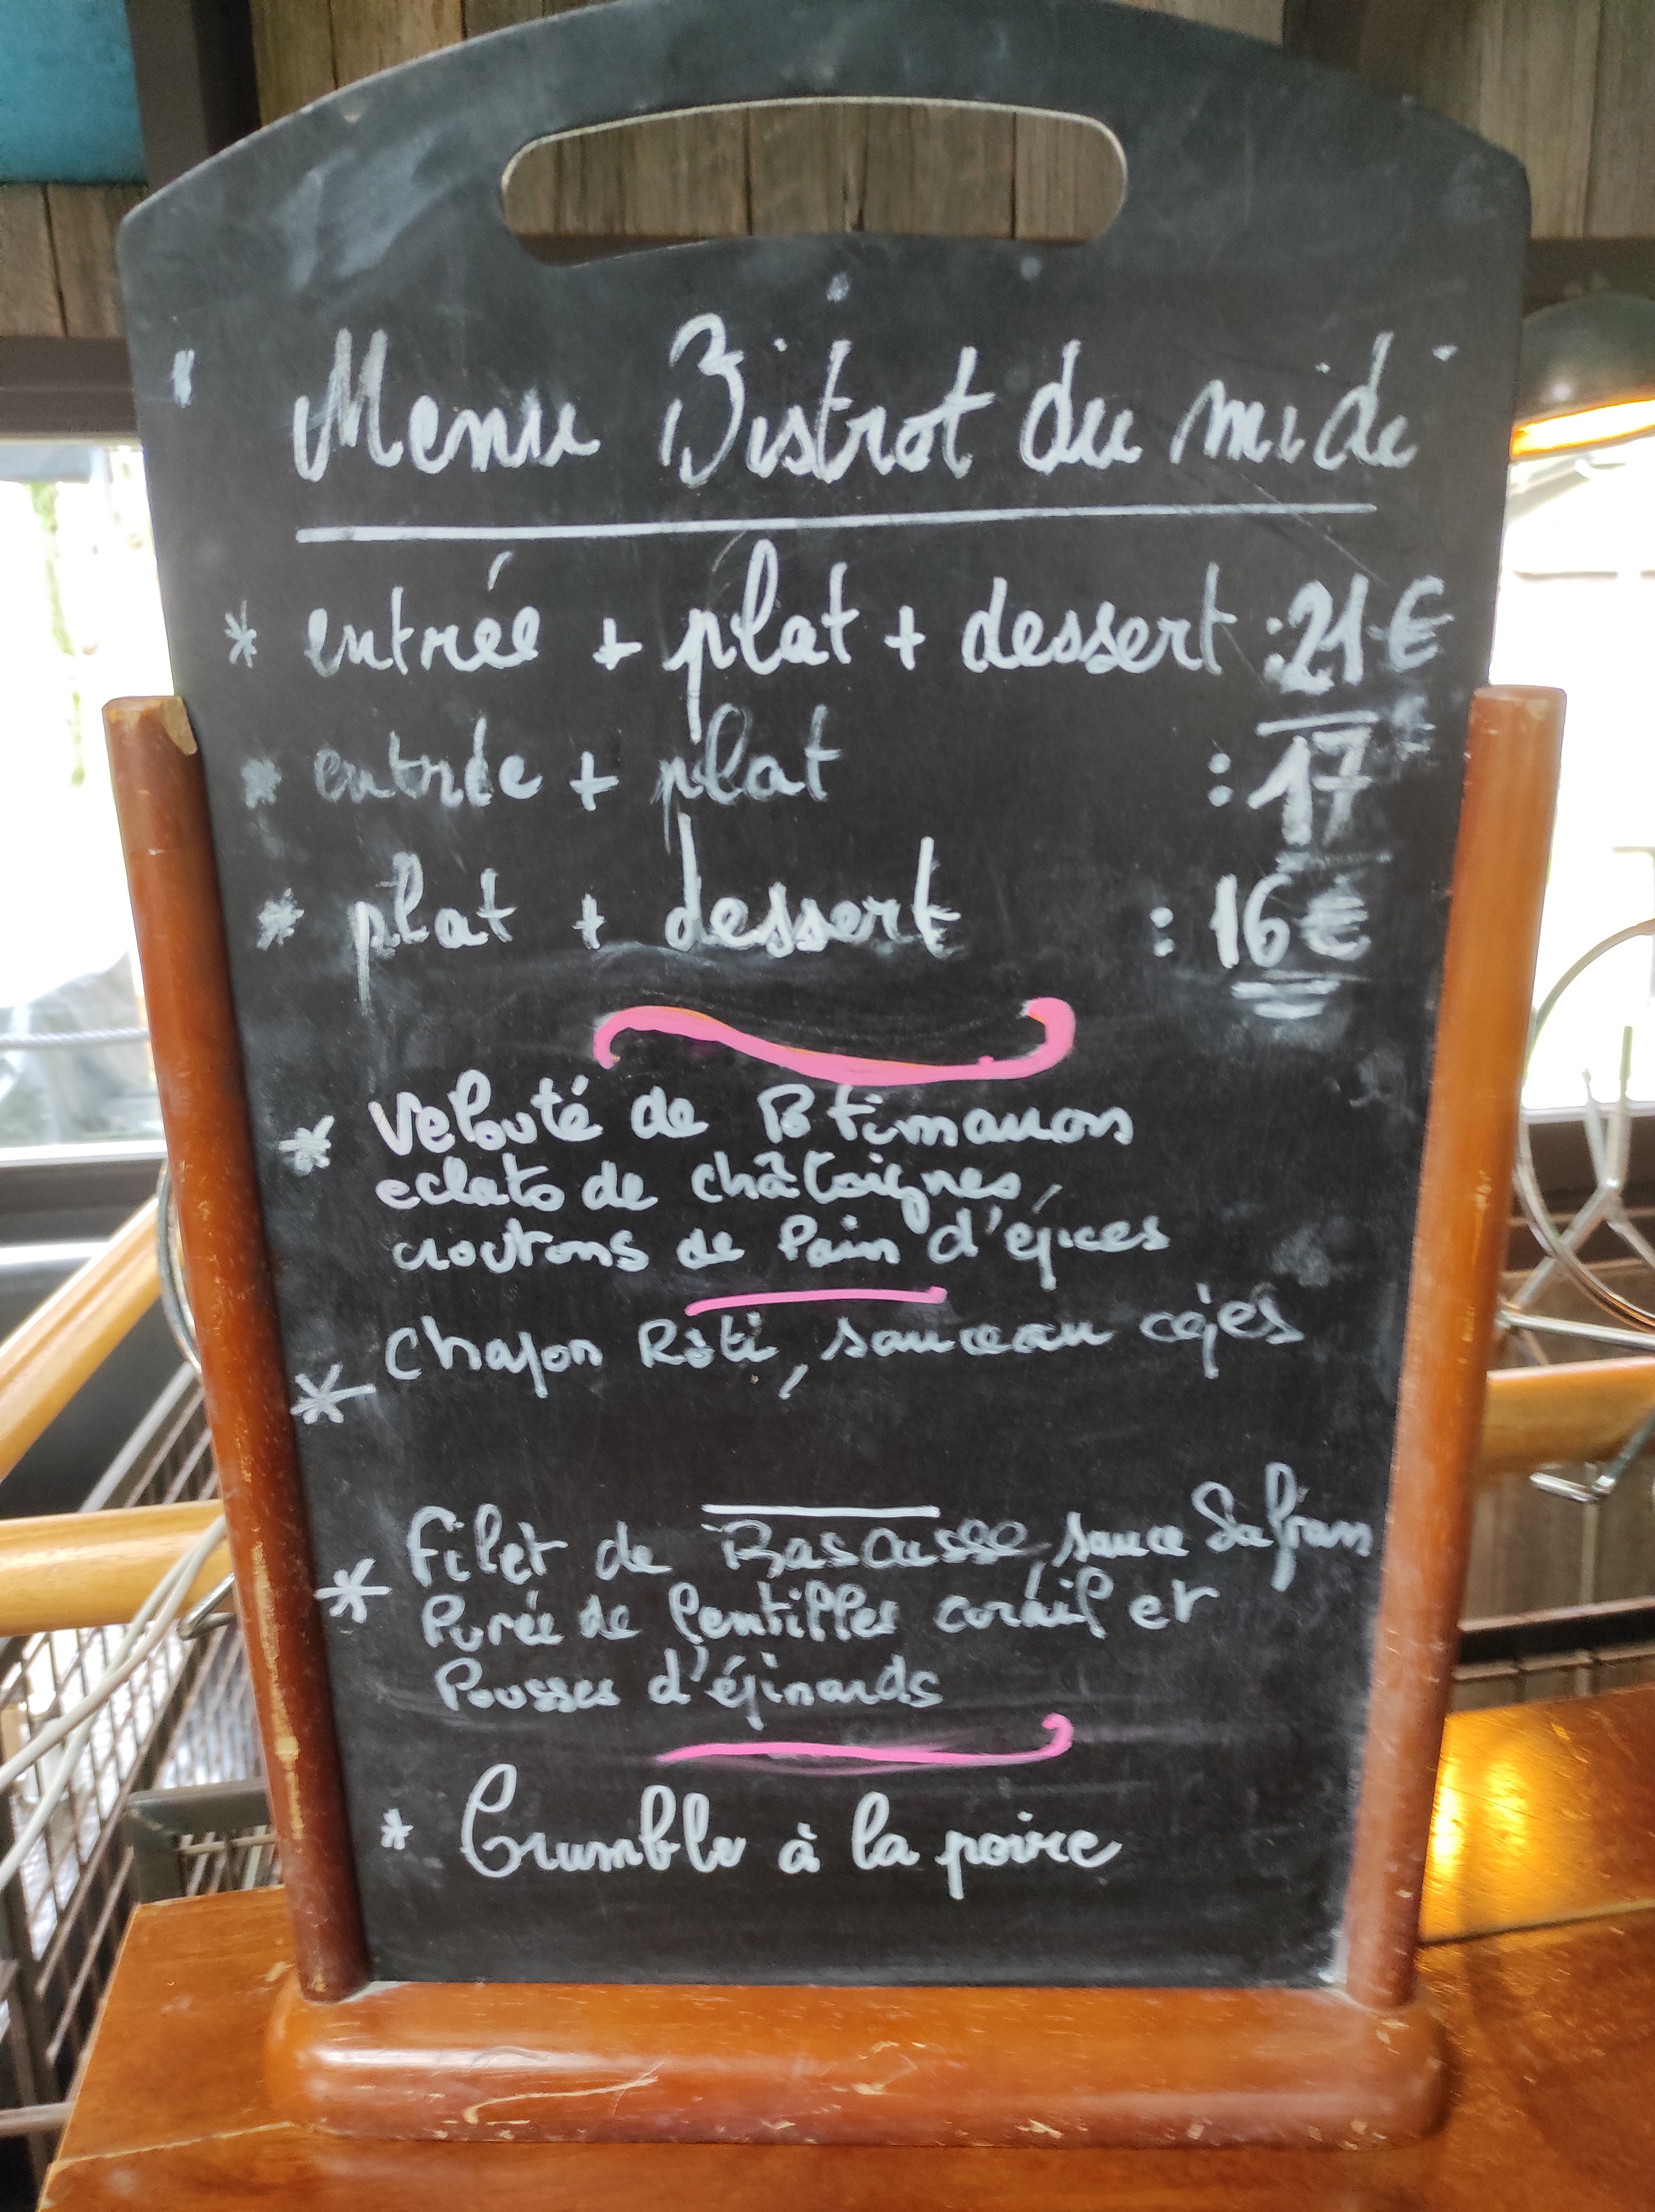 " Menu Bistrot du midi "
* entrée + plat + dessert : 21 €
* entrée + plat : 17 €
* plat + dessert : 16 €
* Velouté de Potimarron
eclats de châtaignes,
croutons de Pain d'épices
* Chapon Rôti, sauce au cèpes
* Filet de Rascasse, sauce Safran
Purée de lentilles corail et
Pousses d'épinards
* Crumble à la poire